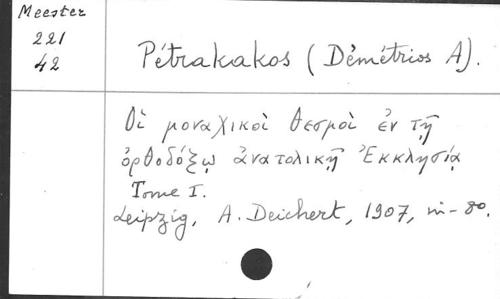 Meester
221
42
Pétrakakos (Démétrios A).
Οἱ μοναχικοὶ θεσμοὶ ἐν τῇ
ὀρθοδόξῳ ἀνατολικῇ Ἐκκλησίᾳ
Tome I.
Leipzig, A. Deichert, 1907, in-8o.